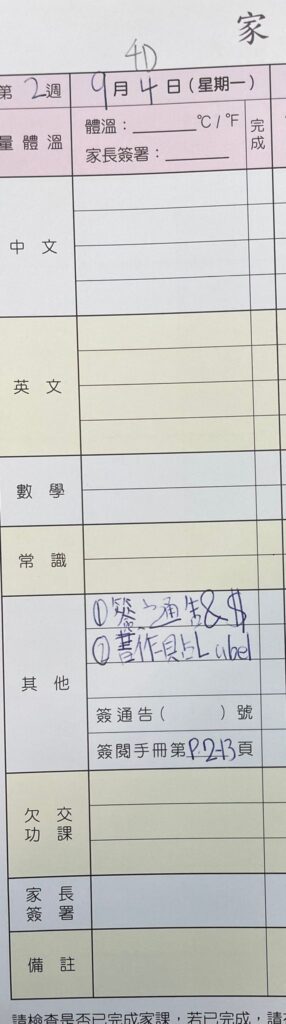 家
4D
第2週 9月4日(星期一)
量體溫 體溫:______°C / °F 完成
家長簽署:______
中文
英文
數學
常識
其他
①簽通告&$
②書作貼Label
簽通告( )號
簽閱手冊第P.2-13頁
欠交功課
家長簽署
備註
請檢查是否已完成家課,若已完成,請